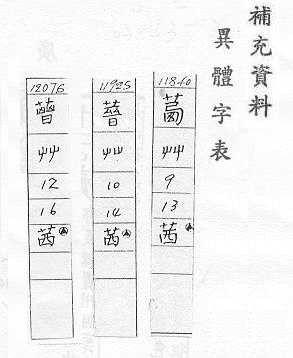 補充資料
異體字表
11840
艸
9
13
茜
11925
艸
10
14
茜
12076
艸
12
16
茜